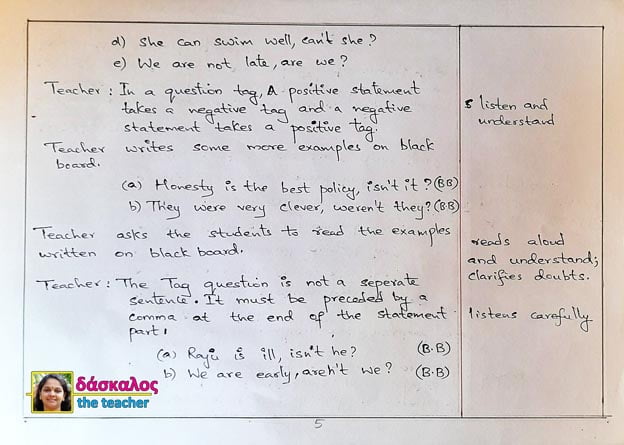 d) She can swim well, can't she?
e) We are not late, are we?
Teacher : In a question tag, A positive statement
takes a negative tag and a negative
statement takes a positive tag.
listen and
understand
Teacher writes some more examples on black
board.
(a) Honesty is the best policy, isn't it? (BB)
b) They were very clever, weren't they? (B.B)
Teacher asks the students to read the examples
written on black board.
reads aloud
and understand;
clarifies doubts.
Teacher : The Tag question is not a seperate
sentence. It must be preceded by a
comma at the end of the statement
part.
listens carefully
(a) Raju is ill, isn't he? (B.B)
b) We are early, aren't we? (B.B)
δάσκαλος
the teacher
5